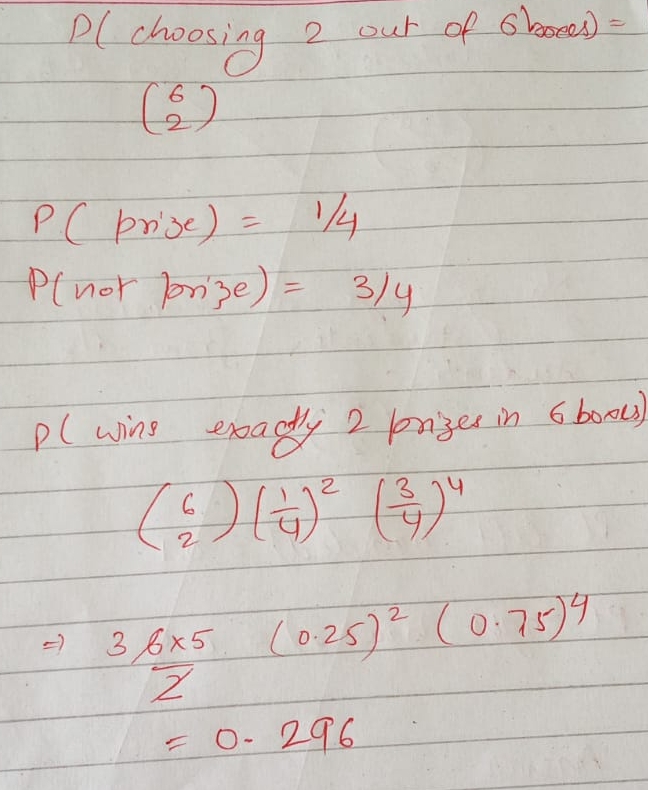 P( choosing 2 out of 6 boxes) =
(6 2)
P( prize) = 1/4
P(not prize) = 3/4
P( wins exactly 2 prizes in 6 boxes)
(6 2) (1/4)² (3/4)⁴
⇒ 3 6×5/2 (0.25)² (0.75)⁴
= 0. 296